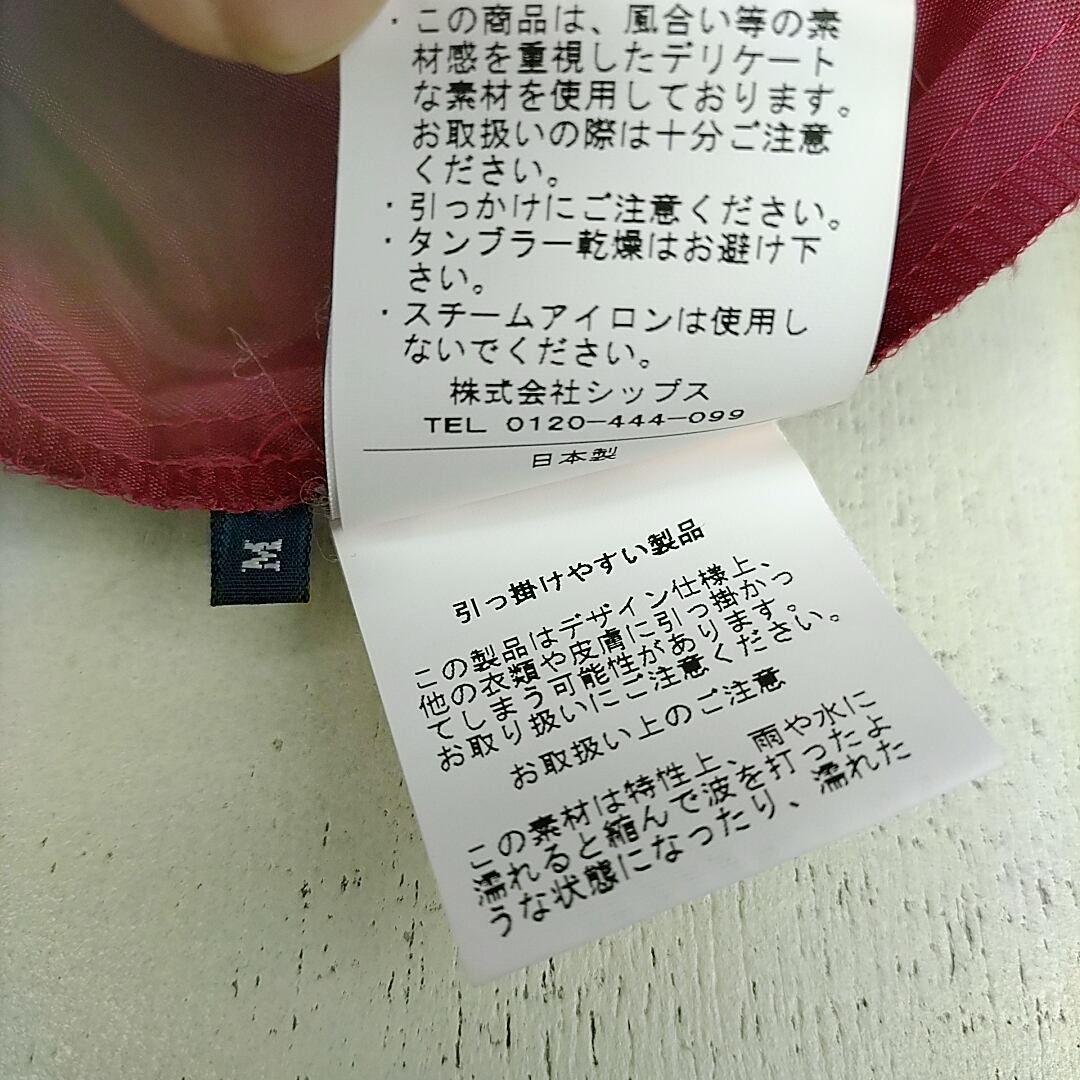 ・この商品は、風合い等の素
材感を重視したデリケート
な素材を使用しております。
お取扱いの際は十分ご注意
ください。
・引っかけにご注意ください。
・タンブラー乾燥はお避け下
さい。
・スチームアイロンは使用し
ないでください。
株式会社シップス
TEL 0120-444-099
日本製
M
引っ掛けやすい製品
この製品はデザイン仕様上、
他の衣類や皮膚に引っ掛かっ
てしまう可能性があります。
お取り扱いにご注意ください。
お取扱い上のご注意
この素材は特性上、雨や水に
濡れると縮んで波を打ったよ
うな状態になったり、濡れた